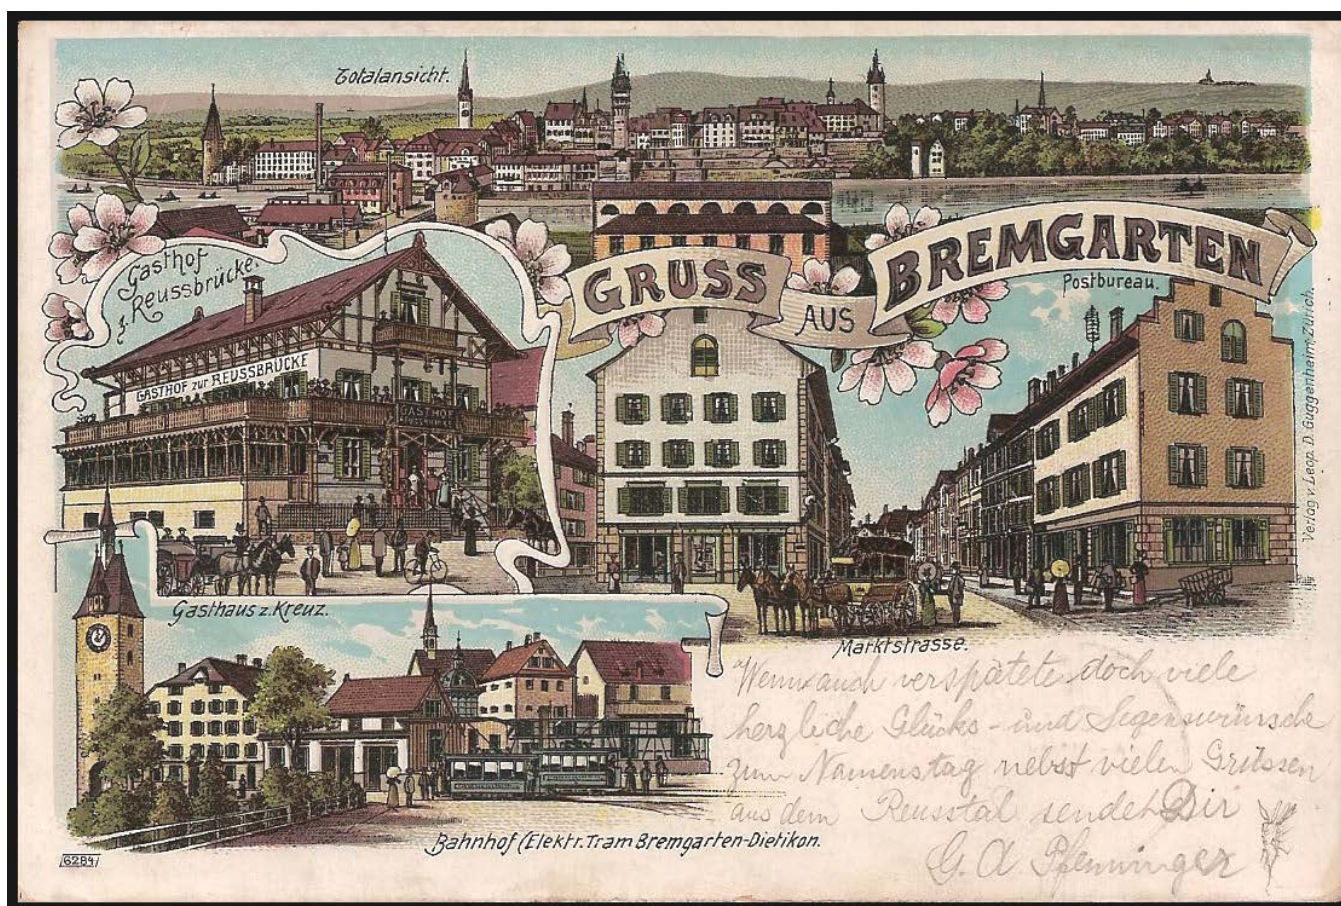 Totalansicht.
Gasthof
z. Reussbrücke.
GASTHOF zur REUSSBRÜCKE
GASTHOF
GRUSS
AUS
BREMGARTEN
Postbureau.
Verlag v. Leop. D. Guggenheim, Zürich.
Gasthaus z. Kreuz.
Marktstrasse.
Bahnhof (Elektr. Tram Bremgarten-Dietikon.
6284
Wenn auch verspätete doch viele
herzliche Glücks- und Segenswünsche
zum Namenstag nebst vielen Grüssen
aus dem Reusstal sendet Dir
G. A Pfenninger